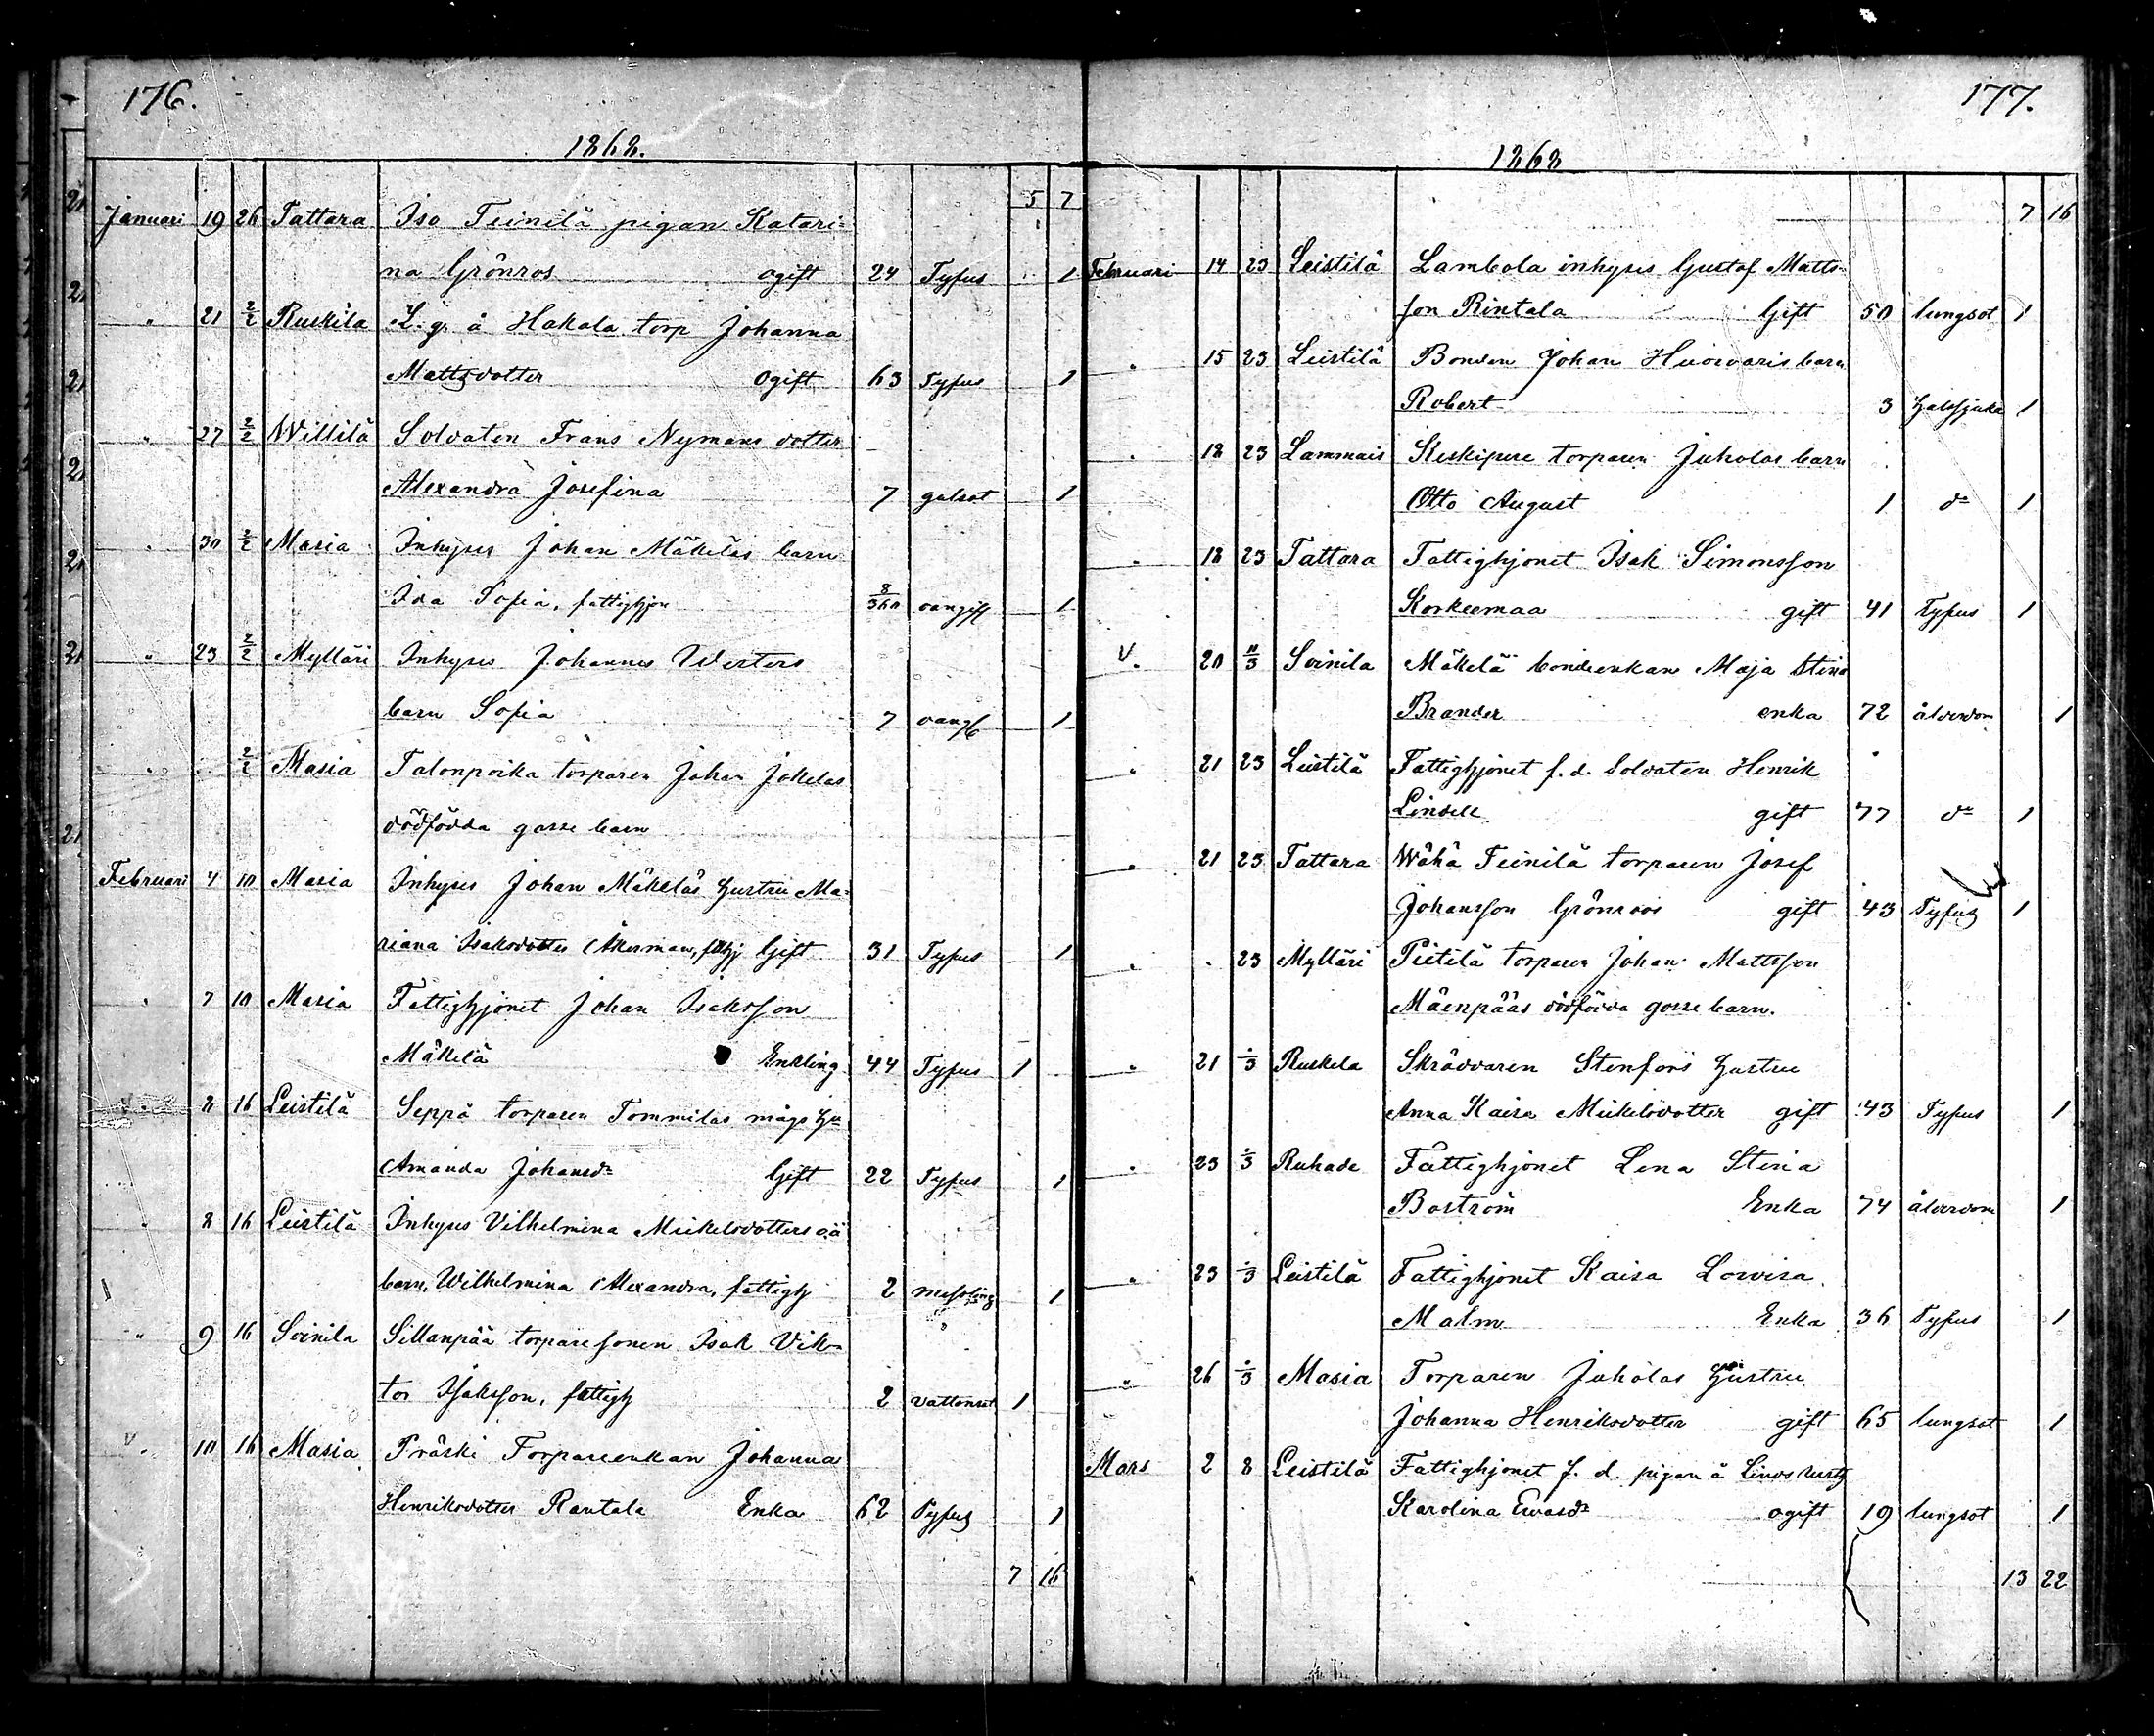 176.
1868.
5 7
Januari 19 26 Tattara Iso Teinilä pigan Katari=
na Grönros ogift 24 Tyfus 1
" 21 2/2 Ruskila L. g. å Hakala torp Johanna
Mattsdotter ogift 63 Tyfus 1
" 27 2/2 Willilä Soldaten Frans Nymans dotter
Alexandra Josefina 7 gulsot 1
" 30 2/2 Masia Inhyses Johan Mäkeläs barn
Ida Sofia, fattighjon 8/360 oangif 1
" 23 2/2 Mylläri Inhyses Johannes Westers
barn Sofia 7 oangf 1
" " 2/2 Masia Talonpoika torparen Johan Jokelas
dödfödda gosse barn
Februari 4 10 Masia Inhyses Johan Mäkeläs hustru Ma=
riana Isaksdotter Åkerman, ftthj Gift 31 Tyfus 1
" 7 10 Masia Fattighjonet Johan Isaksson
Mäkelä Enkling 44 Tyfus 1
" 8 16 Leistilä Seppä torparen Tommilas mågs hu
Amanda Johansdr Gift 22 Tyfus 1
" 8 16 Leistilä Inhyses Vilhelmina Mickelsdotters oä
barn, Wilhelmina Alexandra, fattigh 2 messling 1
" 9 16 Soinila Sillanpää torparesonen Isak Vik=
tor Isaksson, fattigh 2 vattensot 1
V. 10 16 Masia Präski Torpareenkan Johanna
Henriksdotter Rantala Enka 62 Tyfus 1
7 16
177.
1868
7 16
Februari 14 23 Leistilä Lambola inhyses Gustaf Matts=
son Rintala Gift 50 lungsot 1
" 15 23 Leistilä Bonden Johan Huovaris barn
Robert 3 halssjuka 1
" 18 23 Lammais Keskipere torparen Juholas barn
Otto August 1 do 1
" 18 23 Tattara Fattighjonet Isak Simonsson
Korkeemaa gift 41 Tyfus 1
V. 20 /3 Soinila Mäkelä bondeenkan Maja Stina
Brander enka 72 ålderdom 1
" 21 23 Leistilä Fattighjonet f. d. Soldaten Henrik
Lindell gift 77 do 1
" 21 23 Tattara Wähä Teinilä torparen Josef
Johansson Grönroos gift 43 Tyfus 1
" " 23 Mylläri Pietilä torparen Johan Mattsson
Mäenpääs dödfödda gosse barn.
" 21 /3 Ruskela Skräddaren Stenfors hustru
Anna Kaisa Mickelsdotter gift 43 Tyfus 1
" 23 /3 Ruhade Fattighjonet Lena Stina
Boström Enka 74 ålderdom 1
" 23 /3 Leistilä Fattighjonet Kaisa Lovisa
Malm Enka 36 Tyfus 1
" 26 /3 Masia Torparen Juholas hustru
Johanna Henriksdotter gift 65 lungsot 1
Mars 2 8 Leistilä Fattighjonet f. d. pigan å
Karolina Ewasdr ogift 19 lungsot 1
13 22